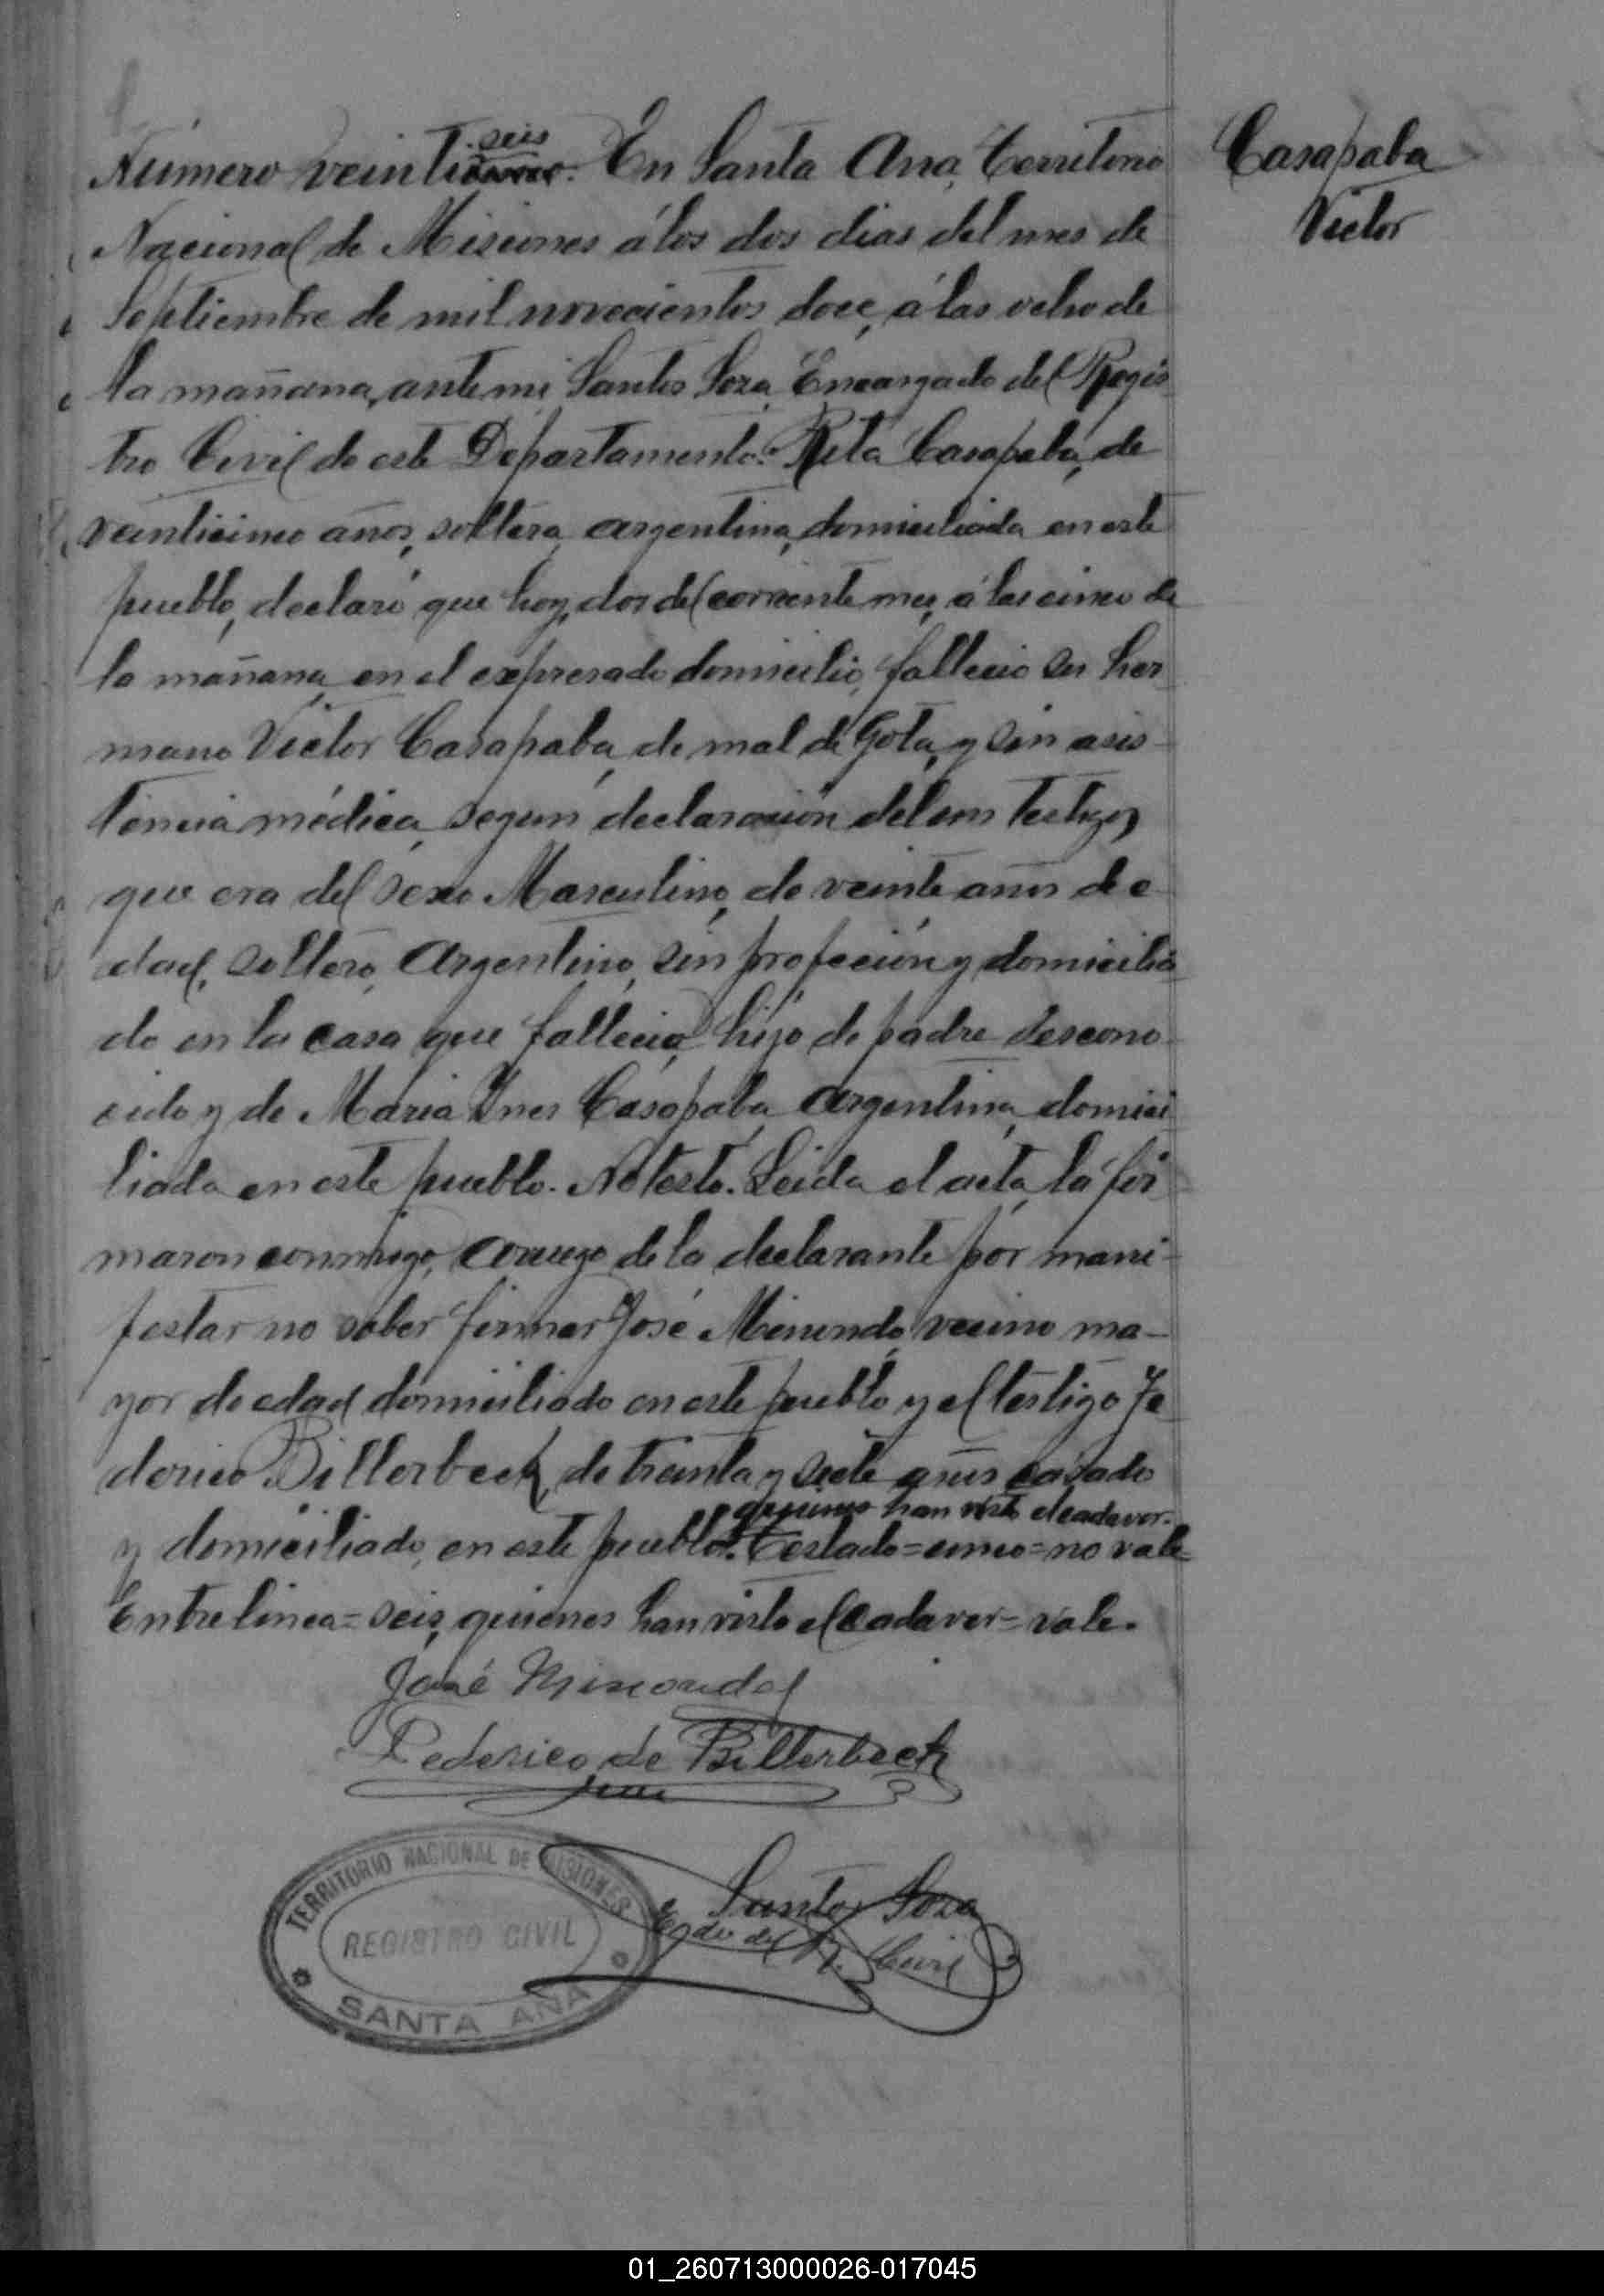 Número veinticinco. seis En Santa Ana, Territorio
Casapaba
Victor
Nacional de Misiones á los dos dias del mes de
Septiembre de mil novecientos doce, á las ocho de
la mañana, ante mi Santos Soza, Encargado del Regis
tro Civil de este Departamento. Rita Casapaba, de
veinticinco años, soltera, argentina, domiciliada en este
pueblo, declaró que hoy, dos del corriente mes, á las cinco de
la mañana, en el expresado domicilio, falleció su her
mano Victor Casapaba, de mal de Gota, y sin asis-
tencia médica, segun declaración del testigo,
que era del sexo Masculino, de veinte años de e-
dad, soltero, Argentino, sin profeción y domicilia
do en la casa que falleció, hijo de padre descono-
cido y de Maria Ynes Casapaba, Argentina, domici
liada en este pueblo. No testó. Leida el acta, la fir
maron conmigo, á ruego de la declarante por mani-
festar no saber firmar José Mirundo, vecino ma-
yor de edad domiciliado en este pueblo y el testigo Fe
derico Billerbeck, de treinta y siete años casado
quienes han visto el cadaver.
y domiciliado, en este pueblo. Testado=cinco=no vale
Entrelinea=seis, quienes han visto el cadaver=vale.
José
Federico de Billerbeck
Santos Soza
Egdo del R. Civil
TERRITORIO NACIONAL DE MISIONES
REGISTRO CIVIL
SANTA ANA
01_260713000026-017045